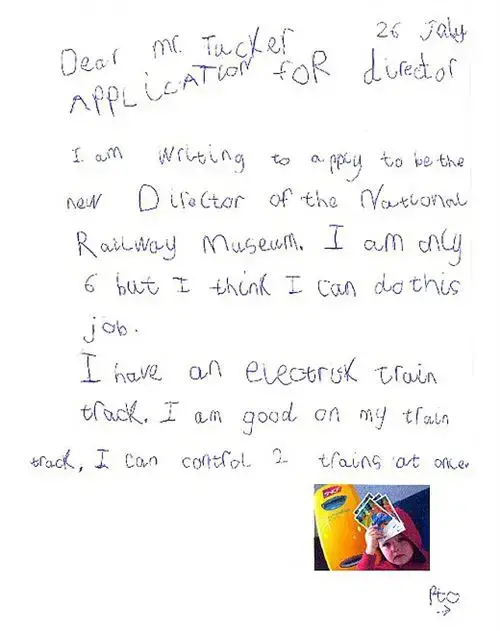 26 July
Dear Mr. Tucker
APPLiCATION FOR director
I am writing to apply to be the
new Director of the National
Railway Museum. I am only
6 but I think I can do this
job.
I have an electrik train
track. I am good on my train
track, I can control 2 trains at once.
Pto